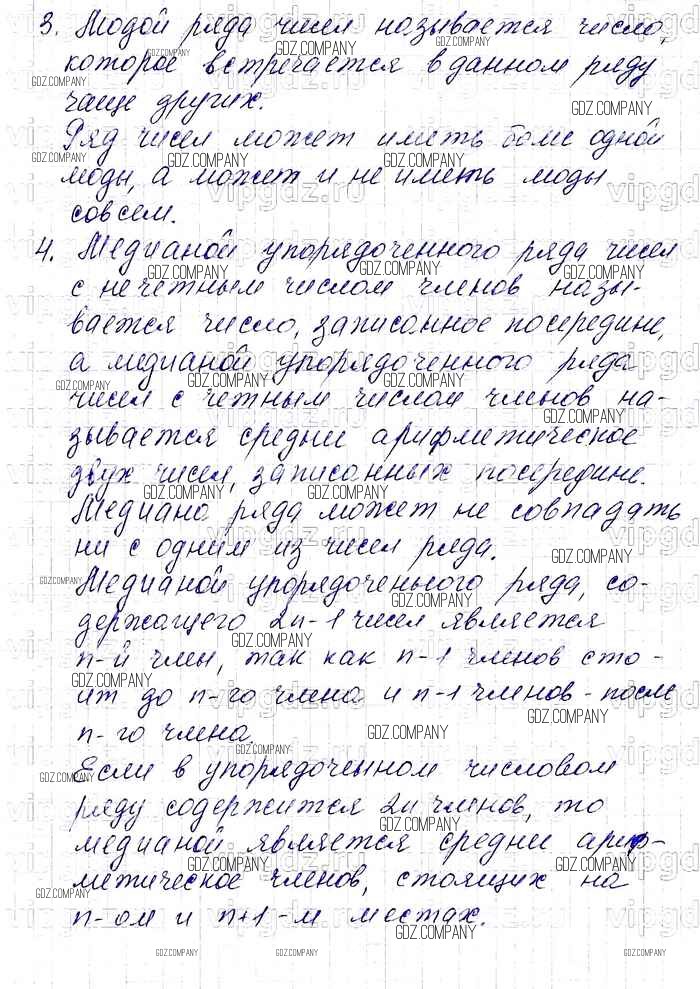 3. Модой ряда чисел называется число,
которое встречается в данном ряду
чаще других.
Ряд чисел может иметь более одной
моды, а может и не иметь моды
совсем.
4. Медианой упорядоченного ряда чисел
с нечетным числом членов назы-
вается число, записанное посередине,
а медианой упорядоченного ряда
чисел с четным числом членов на-
зывается среднее арифметическое
двух чисел, записанных посередине.
Медиана ряда может не совпадать
ни с одним из чисел ряда.
Медианой упорядоченного ряда, со-
держащего 2n-1 чисел является
n-й член, так как n-1 членов сто-
ит до n-го члена и n-1 членов - после
n-го члена.
Если в упорядоченном числовом
ряду содержится 2n членов, то
медианой является среднее ариф-
метическое членов, стоящих на
n-ом и n+1-м местах.
GDZ.COMPANY
vipgdz.ru